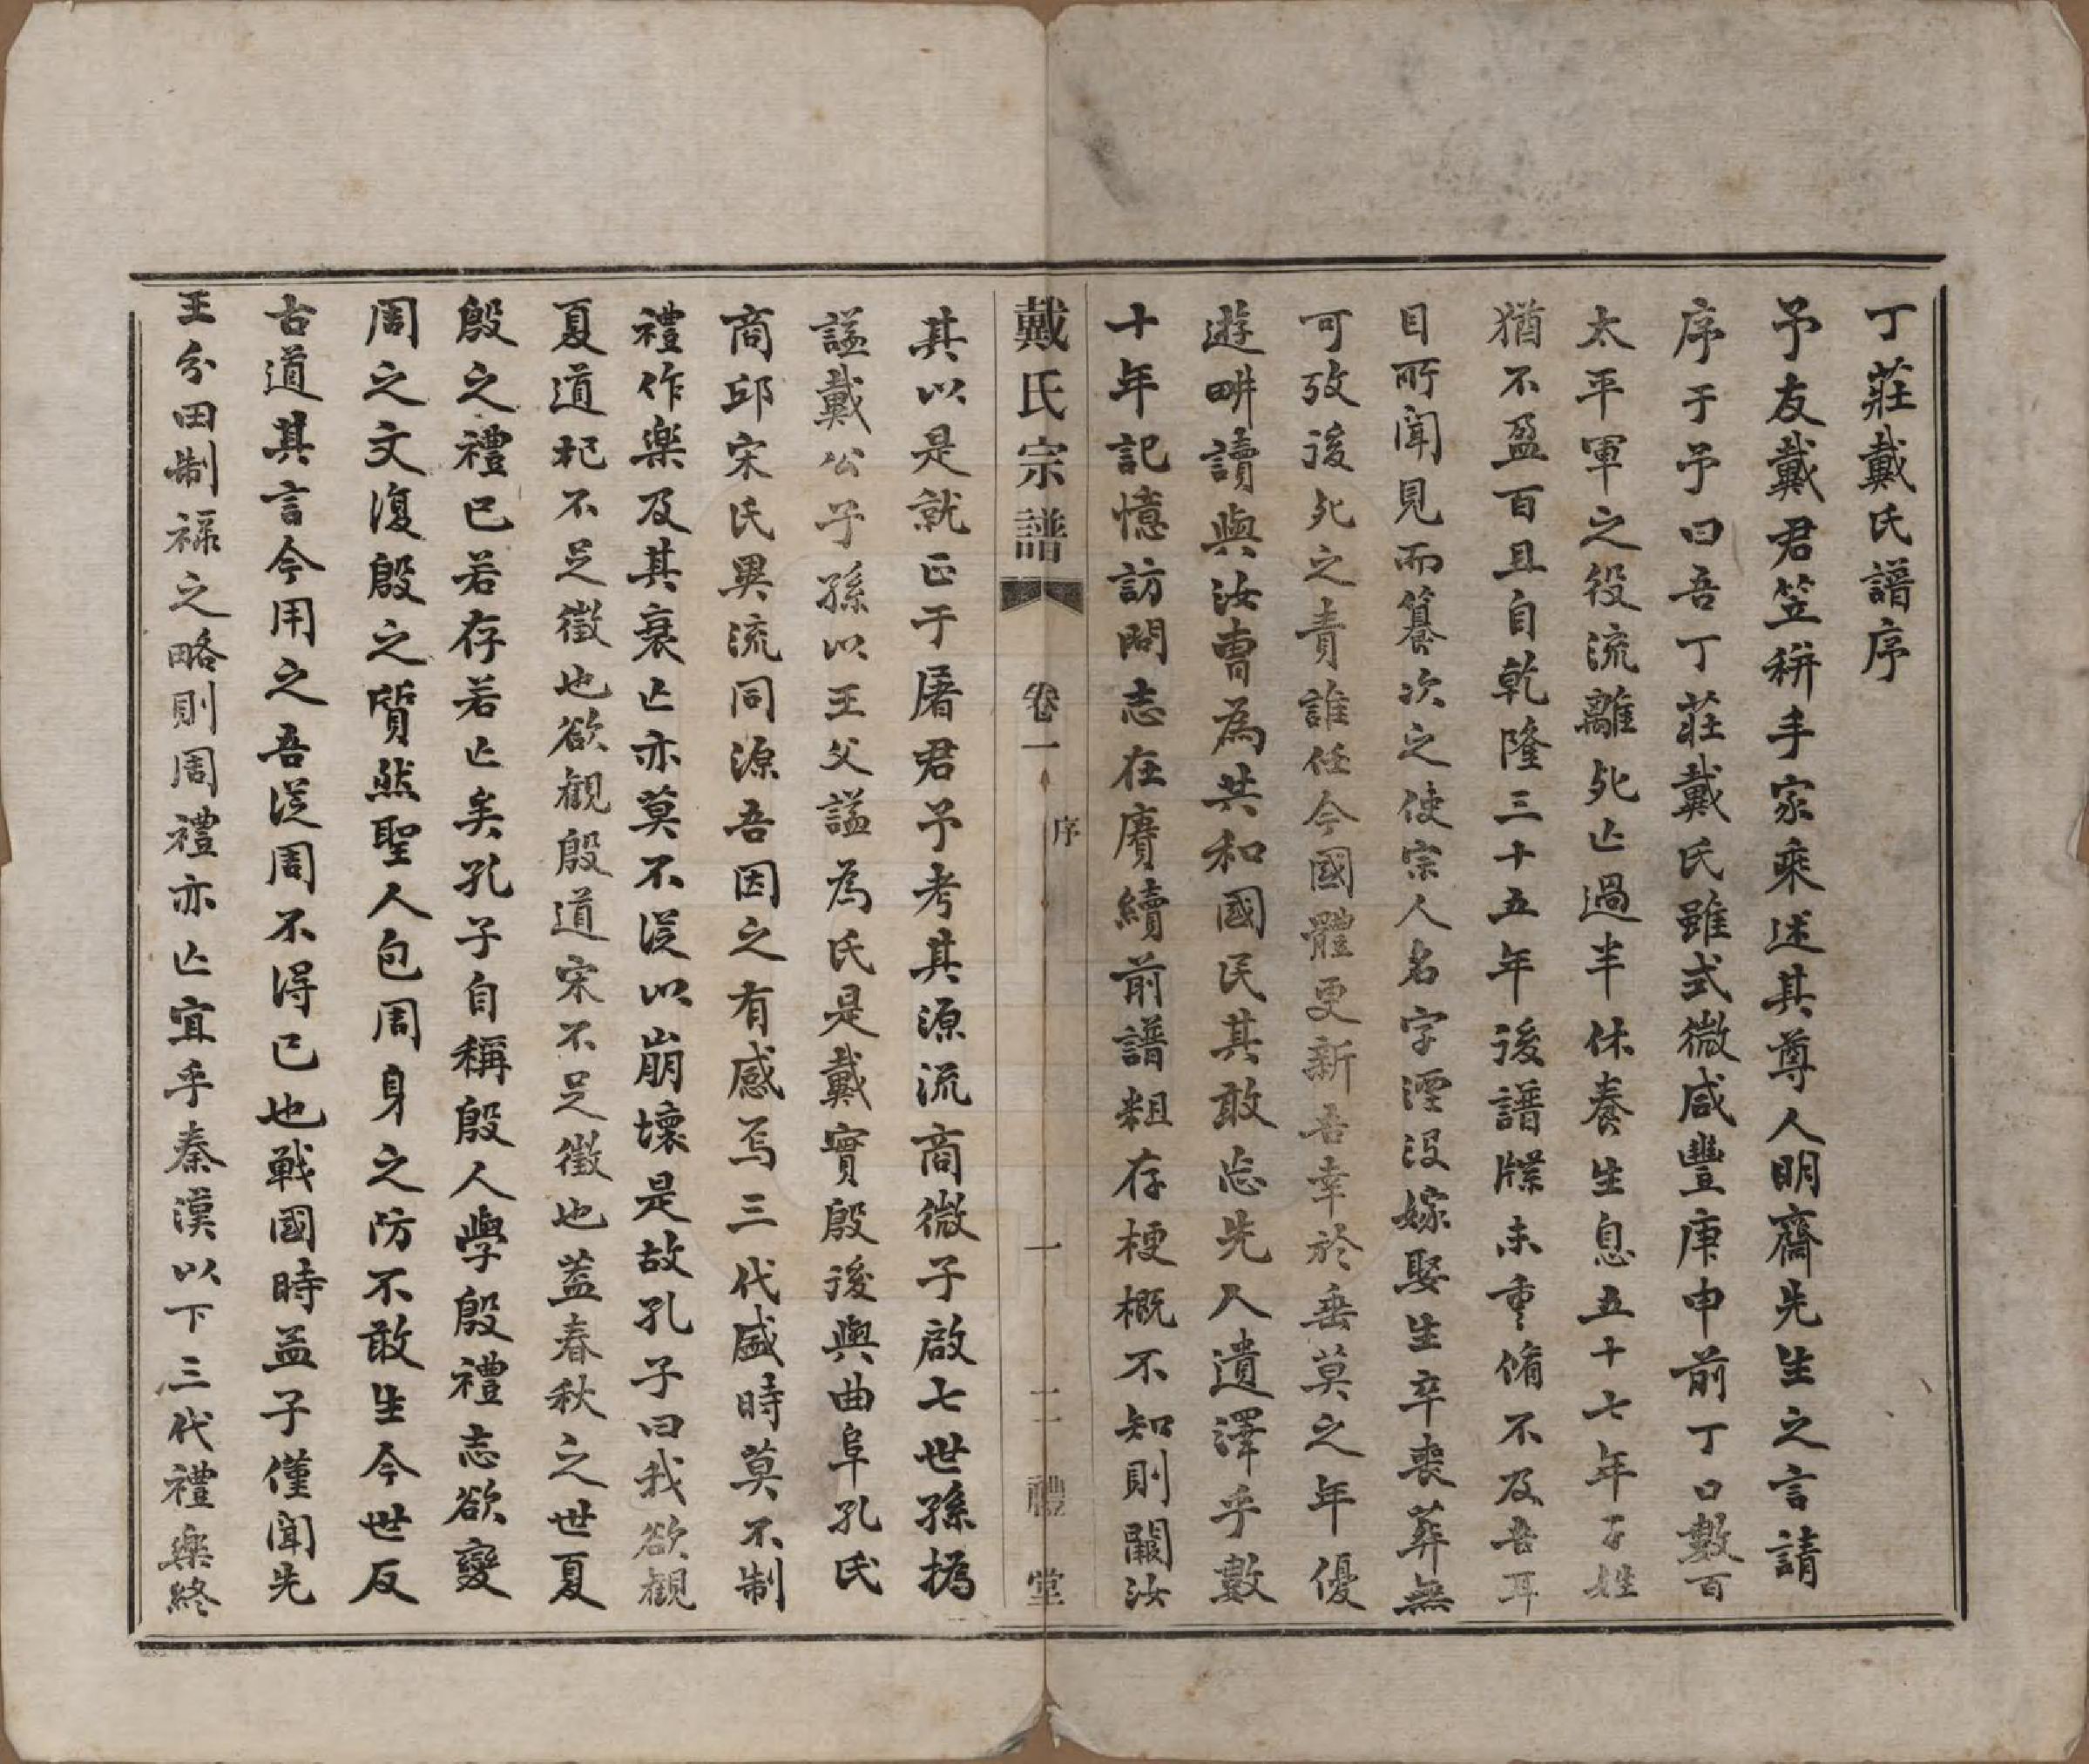 丁莊戴氏譜序
予友戴君笠耕手家乘述其尊人明齋先生之言請
序于予曰吾丁莊戴氏雖式微咸豐庚申前丁口數百
太平軍之役流離死亾過半休養生息五十七年子姓
猶不盈百且自乾隆三十五年後譜牒未重脩不及吾耳
目所聞見而纂次之使宗人名字湮沒嫁娶生卒喪葬無
可攷後死之責誰任今國體更新吾幸於垂莫之年優
遊畊讀與汝曹為共和國民其敢忘先人遺澤乎數
十年記憶訪問志在賡續前譜粗存梗概不知則闕汝
戴氏宗譜 卷一 序 一 二禮堂
其以是就正于屠君予考其源流商微子啟七世孫撝
諡戴公子孫以王父諡為氏是戴實殷後與曲阜孔氏
商邱宋氏異流同源吾因之有感焉三代盛時莫不制
禮作樂及其衰亾亦莫不從以崩壞是故孔子曰我欲觀
夏道杞不足徵也欲觀殷道宋不足徵也蓋春秋之世夏
殷之禮已若存若亾矣孔子自稱殷人學殷禮志欲變
周之文復殷之質然聖人包周身之防不敢生今世反
古道其言今用之吾從周不得已也戰國時孟子僅聞先
王分田制祿之略則周禮亦亾宜乎秦漢以下三代禮樂終